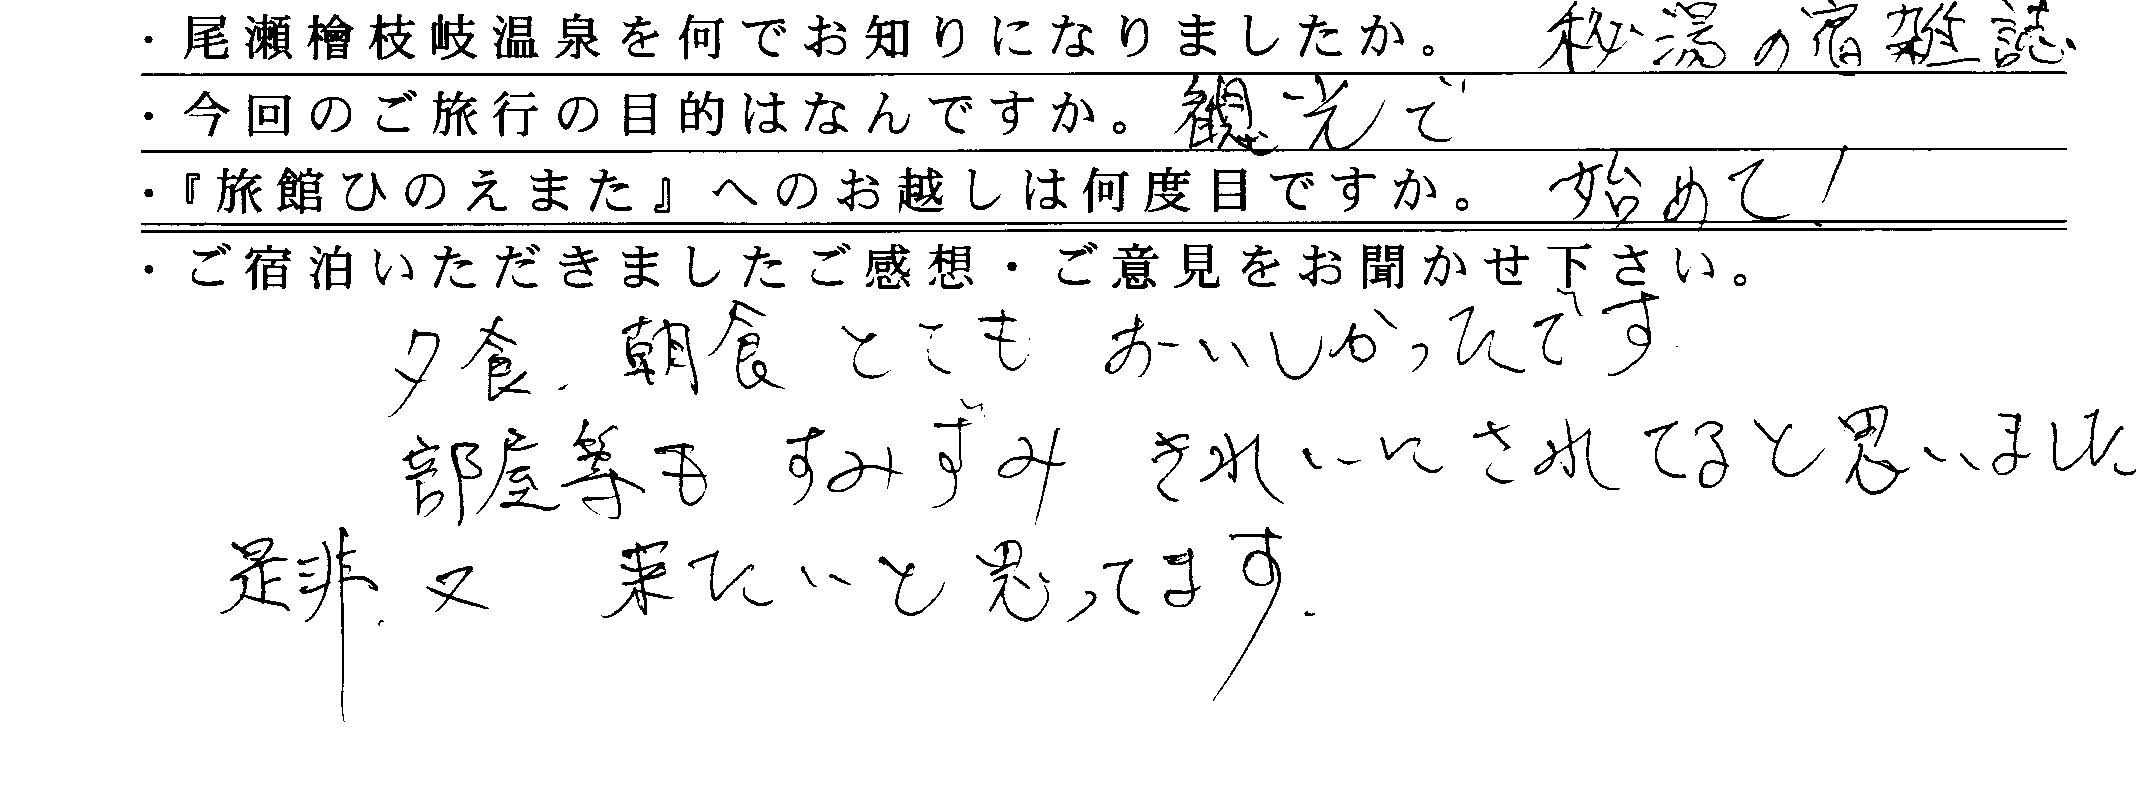 ・尾瀬檜枝岐温泉を何でお知りになりましたか。 秘湯の宿雑誌
・今回のご旅行の目的はなんですか。観光で
・『旅館ひのえまた』へのお越しは何度目ですか。 始めて!
・ご宿泊いただきましたご感想・ご意見をお聞かせ下さい。
夕食、朝食 とても おーいしかったです
部屋等も すみずみ きれいにされてると思いました
是非、又 来たいと思ってます.